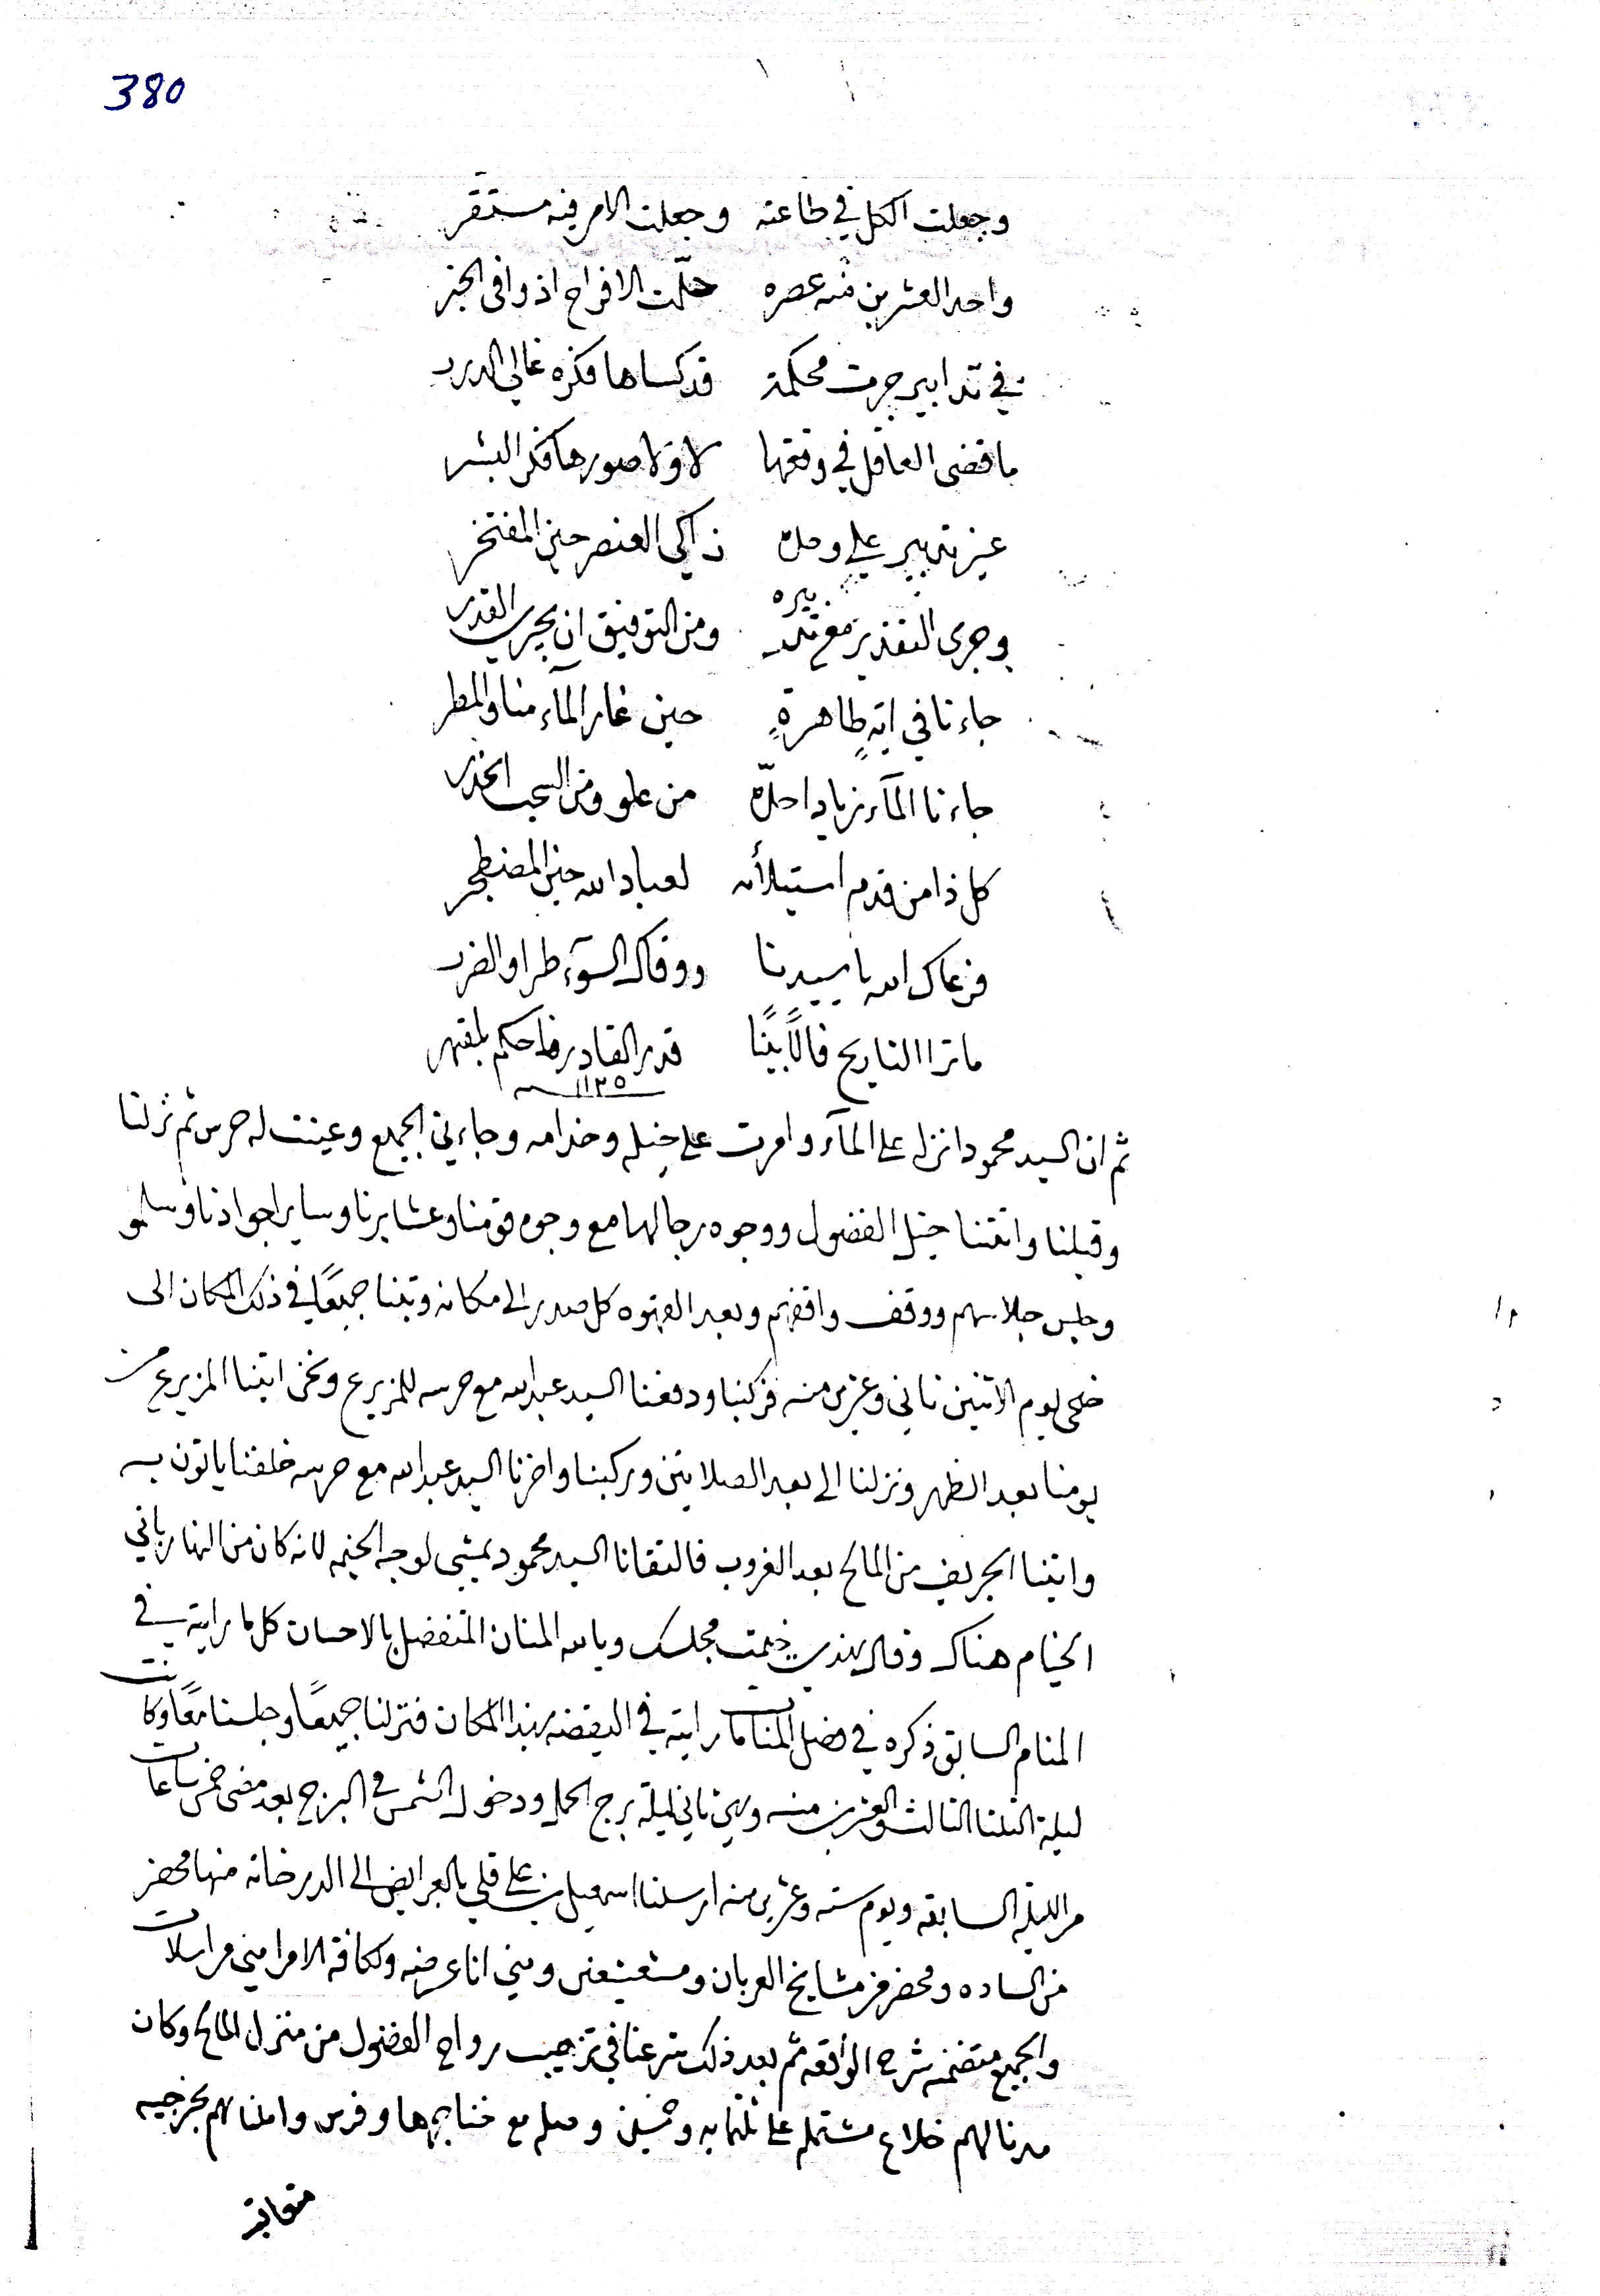 380
وجعلت الكل في طاعته وجعلت الامر فيه مستقر
واحد العشرين منه عصره حلّت الافراح اذ وافى الخبر
في تدابير جرت محكمة قد كساها فكره غالي الدرر
ما قضى العاقل في وقتها لا ولا صورها فكر البشر
غير تدبير علي وحده زاكي العنصر خير المفتخر
وجرى التقدير مع تدبيره ومن التوفيق ان يجري القدر
جاءنا في ايةٍ طاهرةٍ حين غار المآء منا والمطر
جاءنا المآء زيادا حلّه من علو ومن السحب انحدر
كل ذا من قدم استيلأنه لعباد الله خير المضطجر
فرعاك الله يا سيدنا ووقاك السوٓء طرا والضرر
ما ترا التاريخ فالاً بيّنًا قدر القادر فاحكم بلقهر
١١٢٥
ثم ان السيد محمود انزل على المآء وامرت على خيله وخدامه وجاءني الجميع وعينت له حرس ثم نزلنا
وقبلنا واتتنا خيل الفضول ووجوه رجالها مع وجوه قومنا وعشايرنا وساير اجوادنا وسلمو
وجلس جلاسهم ووقف واقفهم وبعد القهوه كل صدر الى مكانه وبتنا جميعًا في ذلك المكان الى
ضحى يوم الاثنين ثاني وعشرين منه فركبنا ودفعنا السيد عبدالله مع حرسه للمزيرع ونحن اتينا المزيرع من
يومنا بعد الظهر ونزلنا الى بعد الصلاتين وركبنا واخرنا السيد عبدالله مع حرسه خلفنا ياتون به
واتينا الجريف من المالح بعد الغروب فالتقانا السيد محمود يمشي لوجه الخيمه لانه كان من النهار باني
الخيام هناك وقال بهذي خيمت مجلسك وبالله المنان المتفضل بالاحسان كل ما رايته في
المنام السابق ذكره في فصل المنامات رايته في اليقضه بهذا المكان فنزلنا جميعًا وجلسنا معًا وكانت
ليلة الثلثا الثالث والعشرين منه وهي ثاني ليلة برج الحمل ودخول الشمس في البرج بعد مضى خمس ساعات
من الليله السابقه ويوم سته وعشرين منه ارسلنا اسمعيل بن علي قلي بالعرايض الى الدرخانه منها محضر
من الساده ومحضر من مشايخ العربان ومني انا عرضه ولكافة الامرا مني مراسلات
والجميع متضمنه شرح الواقعه ثم بعد ذلك شرعنا في ترتيب رواح الفضول من منزل المالح وكان
مدنا لهم خلاع مشتمله على ثلثمايه وخمسين ومعلم مع خنابجها وفرس واملنا لهم بخرجيه
متعاقبه